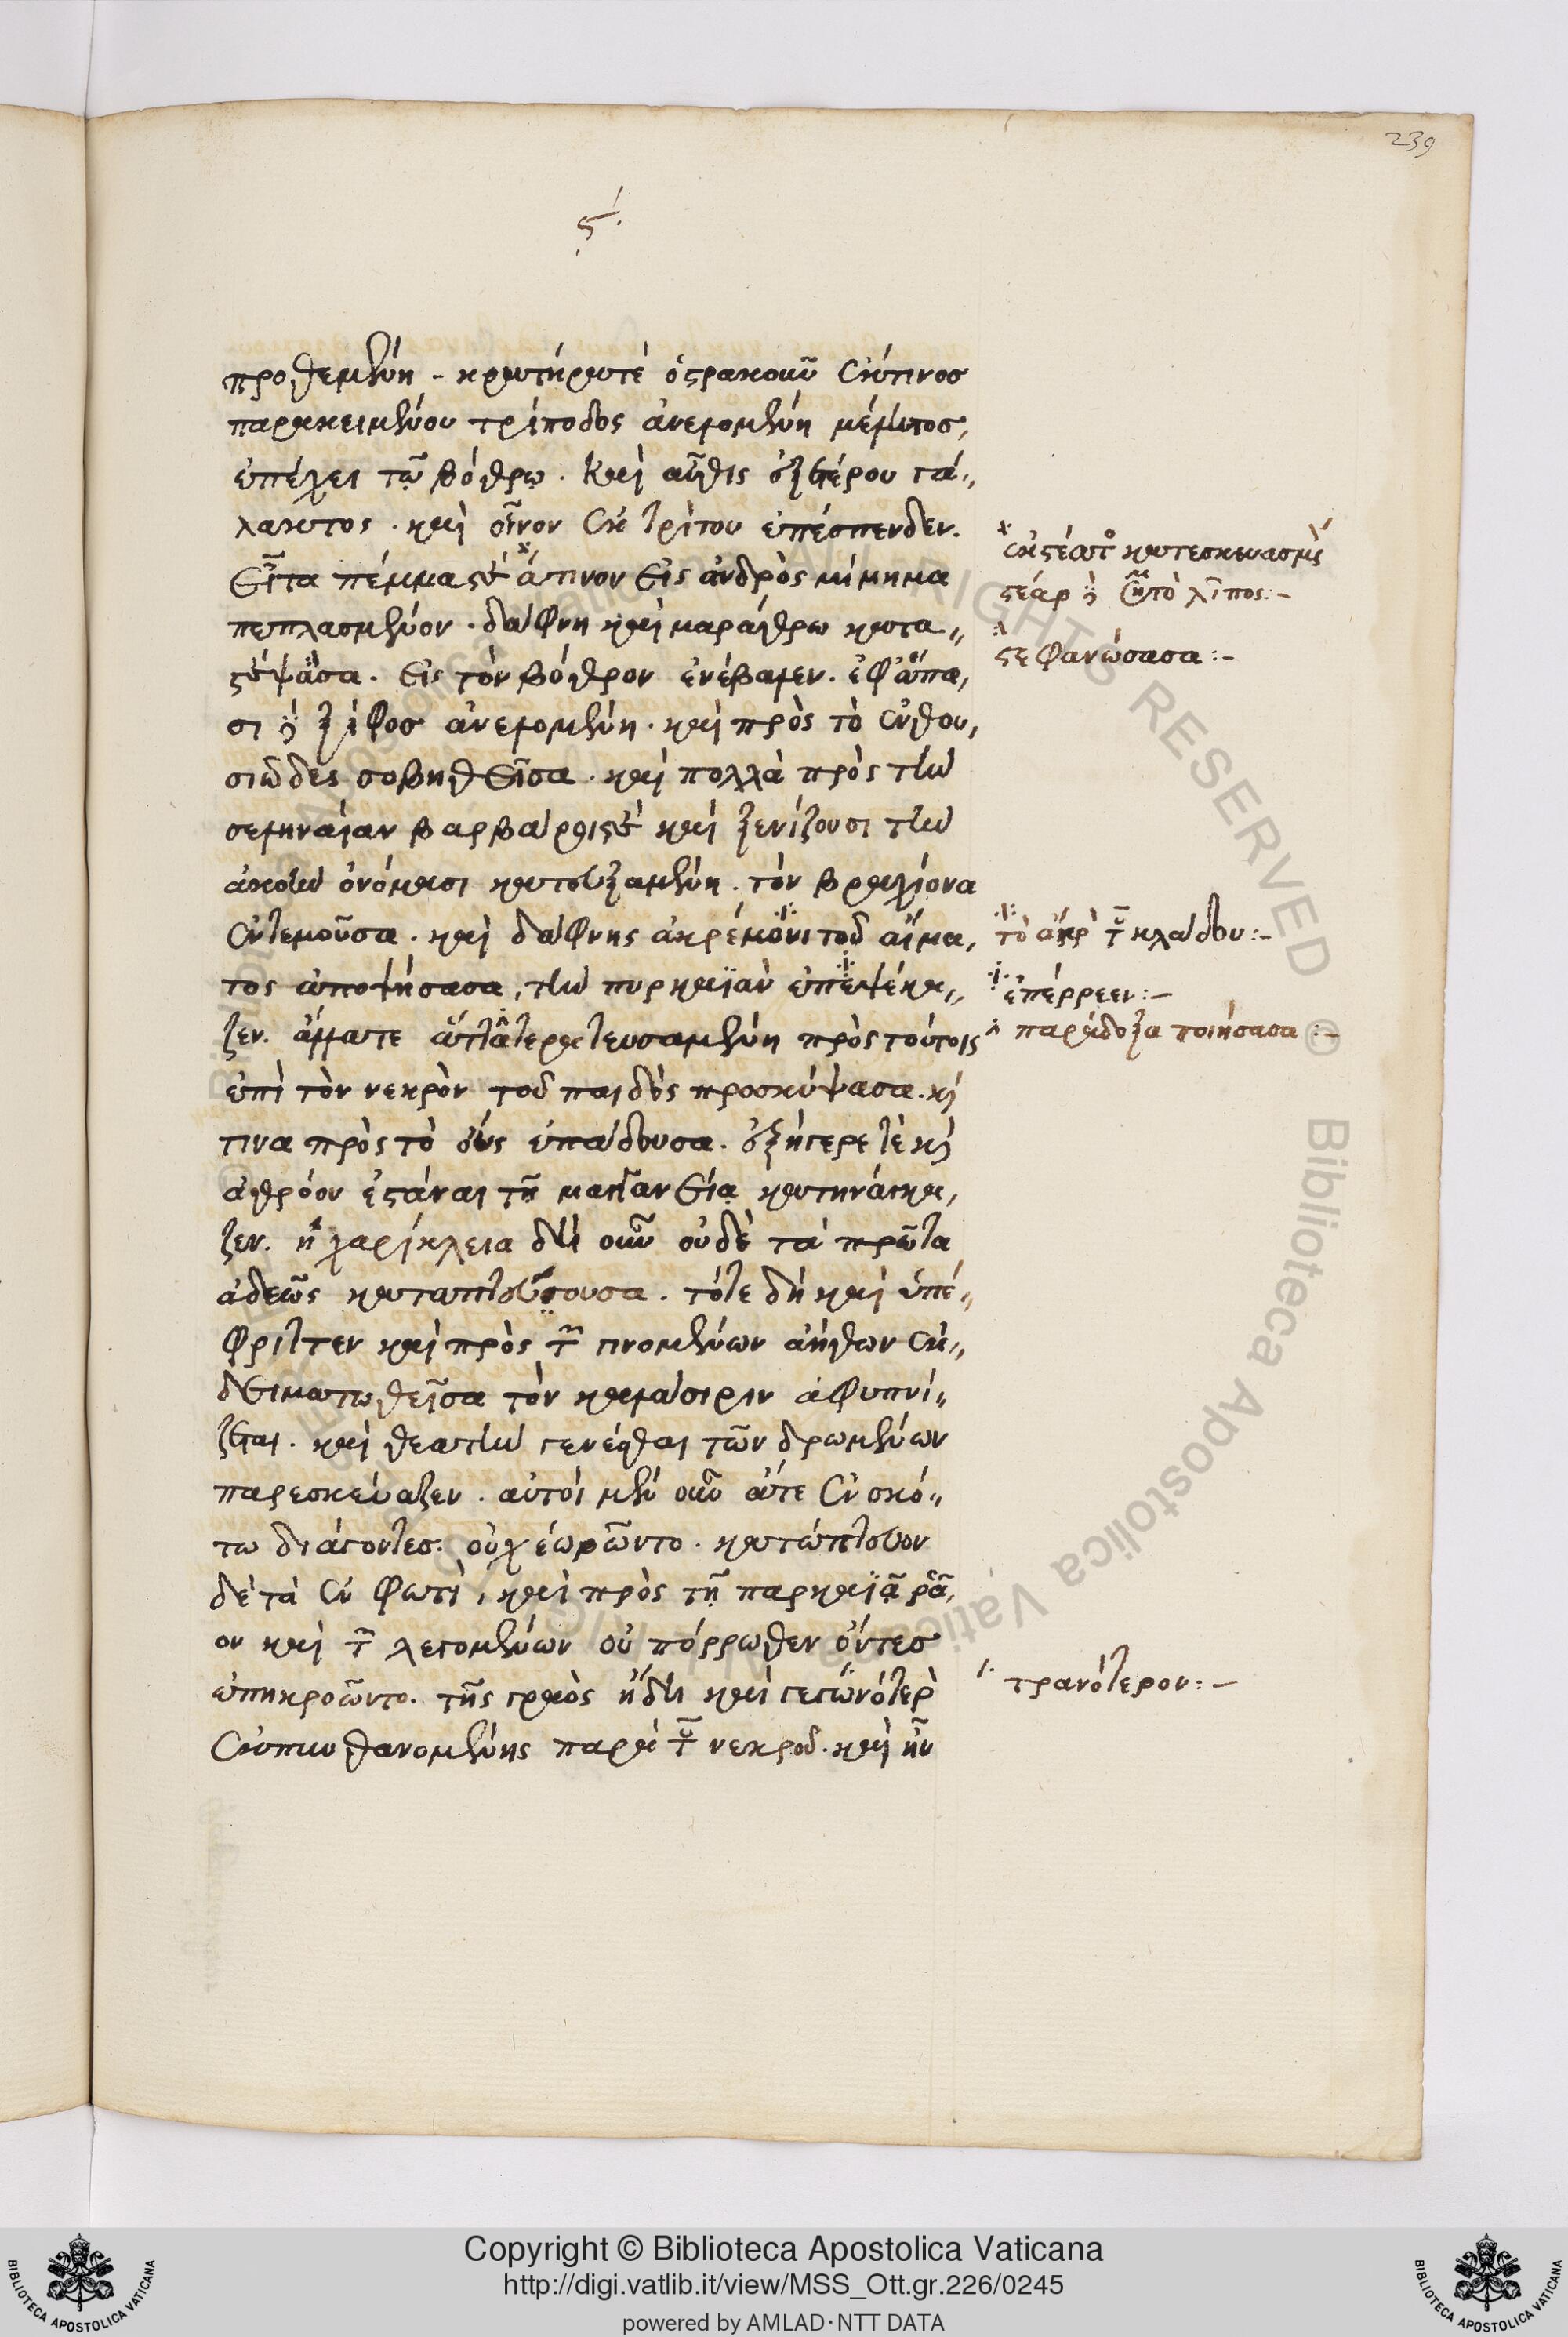 239
ϛʹ.
προθεμένη - κρατῆρατὲ ὀστρακοῦν ἔκτινοσ
παρακειμένου τρίποδος ἀνελομένη μέλιτοσ,
ἐπέχει τῷ βόθρῳ. Καὶ αὖθις ἐξετέρου γά,,
λακτος. καὶ οἶνον ἐκ τρίτου ἐπέσπενδεν.
Εἶτα πέμμα στεάτινον εἰς ἀνδρὸς μίμημα
πεπλασμένον. δάφνη καὶ μαράθρω κατα,,
στέψασα. εἰς τὸν βόθρον ἐνέβαλεν. ἐφἅπα,
σι δὲ ξίφοσ ἀνελομένη. καὶ πρὸς τὸ ἐνθου,
σιῶδες σοβηθεῖσα. καὶ πολλὰ πρὸς τὴν
σεληναίαν βαρβάροιςτὲ καὶ ξενίζουσι τὴν
ἀκοὴν ὀνόμασι κατευξαμένη. τὸν βραχίονα
ἐντεμοῦσα. καὶ δάφνης ἀκρέμονι τοῦ αἵμα,
τος ἀποψήσασα, τὴν πυρκαϊὰν ἐπεψέκα,,
ζεν. ἄλλατε ἄττατερατευσαμένη πρὸς τούτοις
ἐπὶ τὸν νεκρὸν τοῦ παιδὸς προσκύψασα. καὶ
τινα πρὸς τὸ οὖς ἐπάδουσα. ἐξήγερετὲ καὶ
ἀθρόον ἑστάναι τῇ μαγγανείᾳ κατηνάγκα,
ζεν. ἡ χαρίκλεια δὲ οὖν οὐδὲ τὰ πρῶτα
ἀδεῶς κατοπτεύσουσα. τότε δὴ καὶ ὑπέ,,
φριττεν καὶ πρὸς τῶν γινομένων ἀήθων ἐκ,,
δειματωθεῖσα τὸν καλάσιριν ἀφυπνί,,
ζεται. καὶ θεατὴν γενέσθαι τῶν δρωμένων
παρεσκεύαζεν. αὐτοὶ μὲν οὖν ἅτε ἐν σκό,,
τω διάγοντεσ. οὐχ ἑωρῶντο. κατώπτευον
δὲ τὰ ἐν φωτὶ, καὶ πρὸς τῇ παρκαϊᾷ ρᾷ,
ον καὶ τῶν λεγομένων οὐ πόρρωθεν ὄντεσ
ἐπηκροῶντο. τῆς γραὸς ἤδη καὶ γεγωνότερον
ἐκπυνθανομένης παρὰ τοῦ νεκροῦ. καὶ ἦν
ἐκ στέατος κατεσκευασμένον
στέαρ δὲ ἐστὶ τὸ λῖπος:-
στεφανώσασα:-
τὸ ἄκρον τοῦ κλάδου:-
ἐπέρρεεν:-
παράδοξα ποιήσασα:-
τρανότερον:-
Copyright © Biblioteca Apostolica Vaticana
http://digi.vatlib.it/view/MSS_Ott.gr.226/0245
powered by AMLAD·NTT DATA